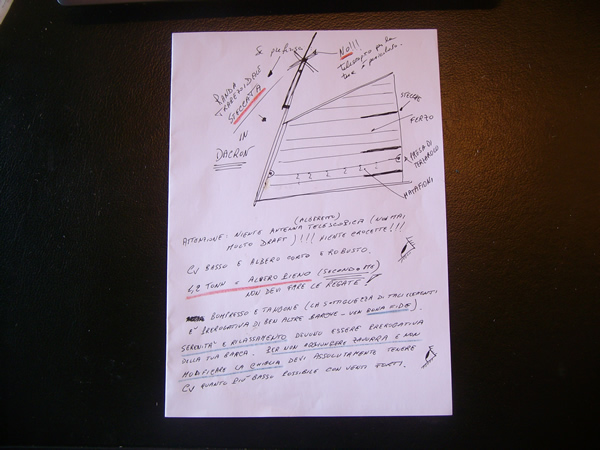 Si preferisce
NO!!!
telescopica
è
RANDA
TRAPEZOIDALE
STECCATA
IN
DACRON
STECCHE
FERZO
PRESA DI
TERZAROLO
MATAFIONI
(ALBERETTO)
ATTENZIONE: NIENTE ANTENNA TELESCOPICA (NON MAI
MOLTO DRAFT)!!! NIENTE CROCETTE!!!
CV BASSO E ALBERO CORTO E ROBUSTO.
1,2 TONN = ALBERO (SECONDO ME)
NON DEVI FARE LE REGATE!
BOMPRESSO E TANGONE (LA SOTTIGLIEZZA DI TALI ELEMENTI
E' PREROGATIVA DI BEN ALTRE BARCHE - BONA FIDE).
SERENITA' E RILASSAMENTO DEVONO ESSERE PREROGATIVA
DELLA TUA BARCA. PER NON AGGIUNGERE ZAVORRA E NON
MODIFICARE LA CHIGLIA DEVI ASSOLUTAMENTE TENERE
CV QUANTO PIÙ BASSO POSSIBILE CON VENTI FORTI.